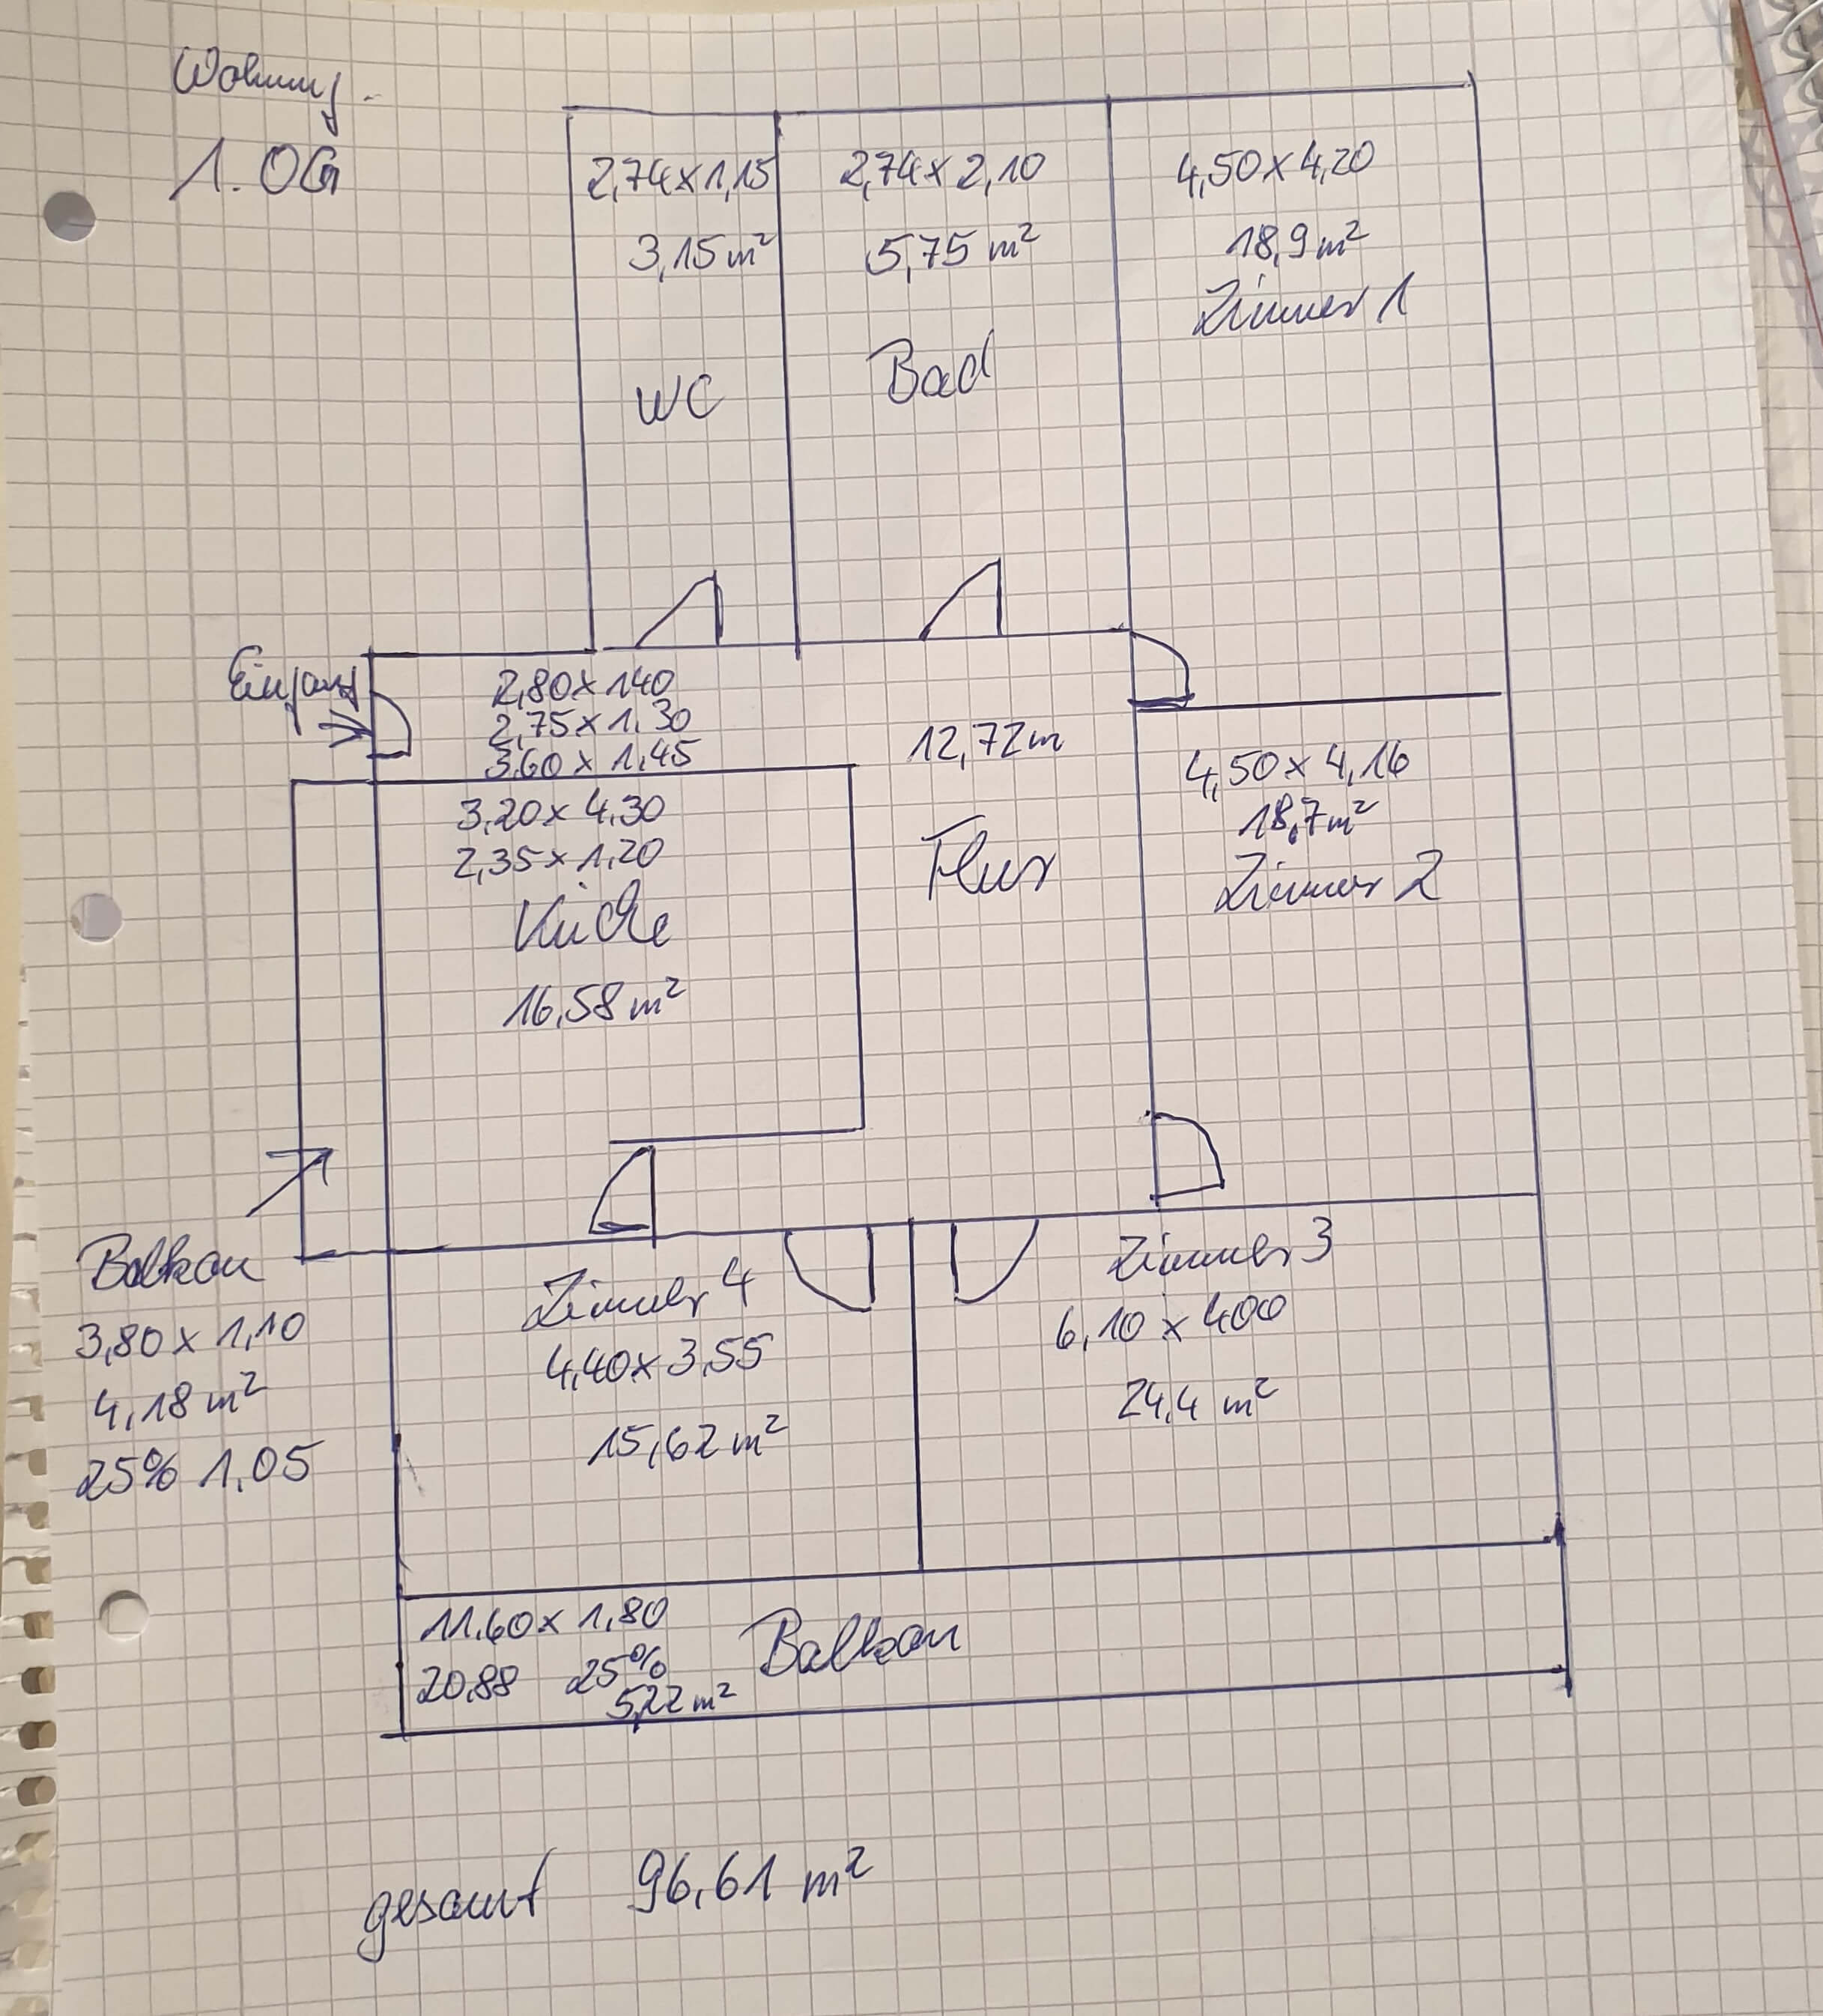 Wohnung
1. OG
2,74 x 1,15
3,15 m²
WC
2,74 x 2,10
5,75 m²
Bad
4,50 x 4,20
18,9 m²
Zimmer 1
Eingang
2,80 x 140
2,75 x 1,30
3,60 x 1,45
12,72 m
Flur
3,20 x 4,30
2,35 x 1,20
Küche
16,58 m²
4,50 x 4,16
18,7 m²
Zimmer 2
Balkon
3,80 x 1,10
4,18 m²
25% 1,05
Zimmer 4
4,40 x 3,55
15,62 m²
Zimmer 3
6,10 x 400
24,4 m²
11,60 x 1,80
20,88 25%
5,22 m²
Balkon
gesamt 96,61 m²